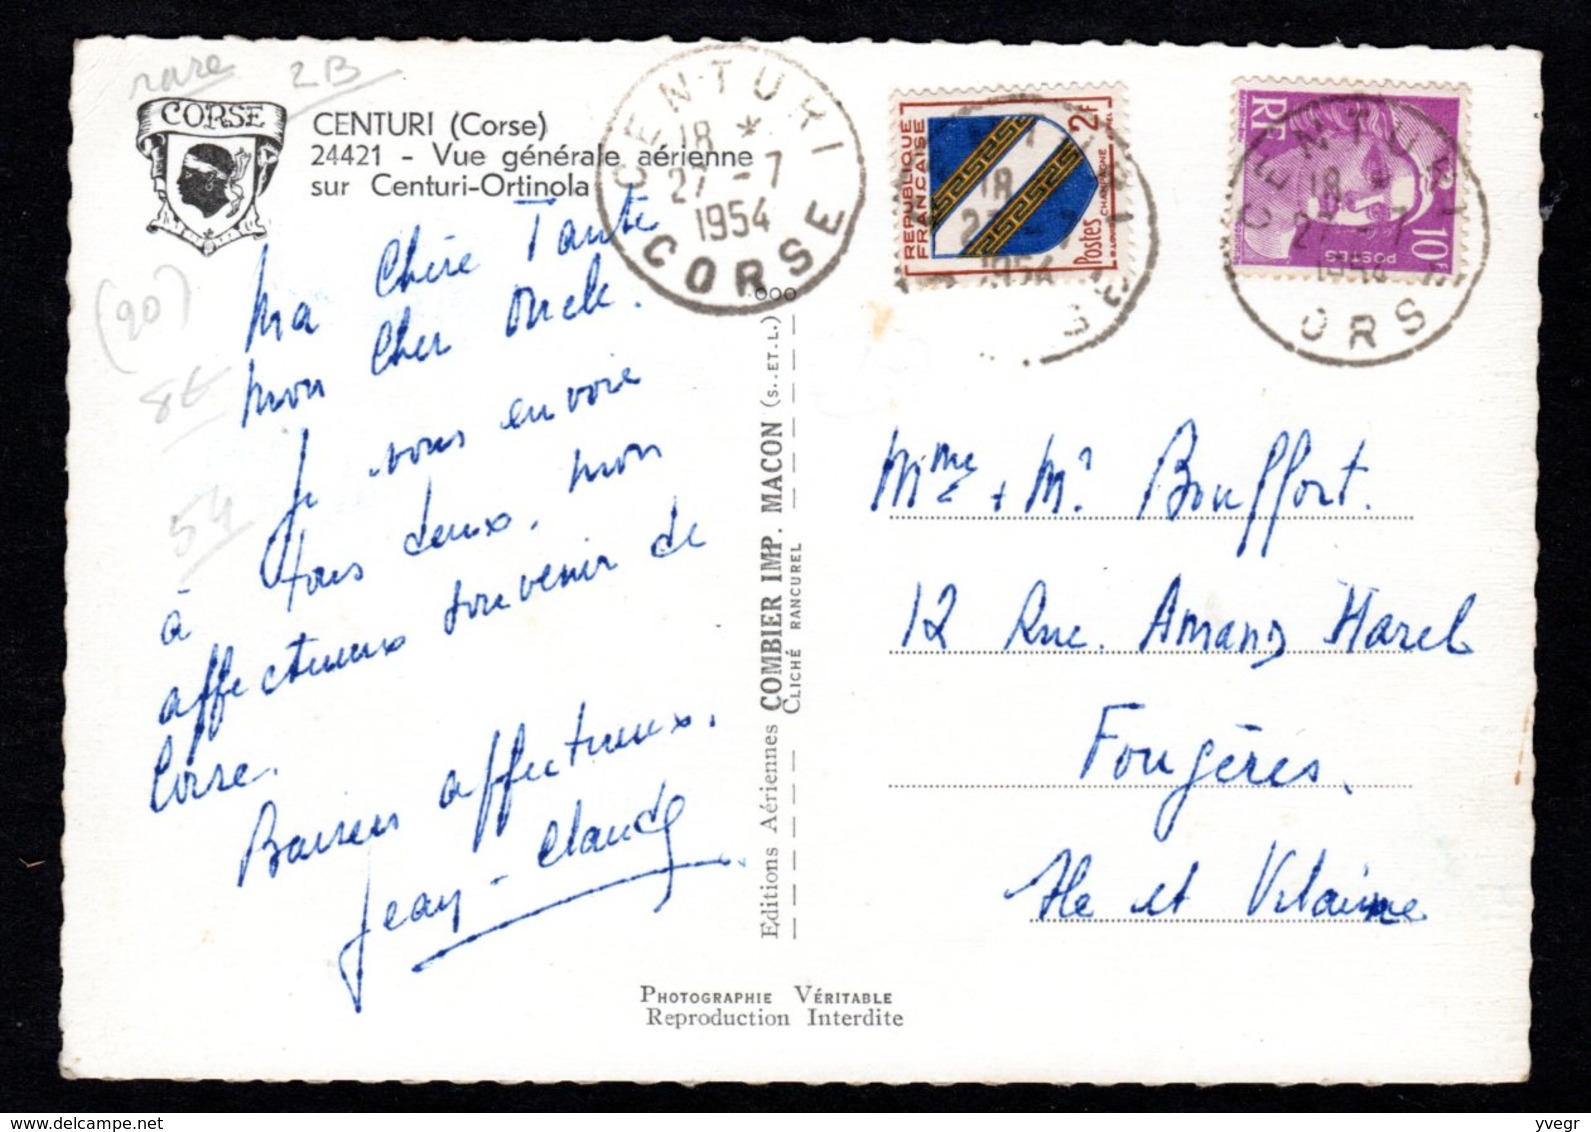 rare 2B
CORSE
CENTURI (Corse)
24421 - Vue générale aérienne
sur Centuri-Ortinola
(20)
8€
54
Ma Chère Tante
mon Cher Oncle.
Je vous envoie
à tous deux. mon
affectueux souvenir de
Corse.
Baisers affectueux.
Jean-Claude
CENTURI
18 *
27 -7
1954
CORSE
REPUBLIQUE
FRANCAISE
2F
Postes
CHAMPAGNE
18
27 -7
1954
RF
POSTES
10F
CENTURI
18 *
27 -7
1954
CORSE
Editions Aériennes COMBIER IMP. MACON (S.-ET-L.)
CLICHÉ RANCUREL
Mme + Mr Bouffort.
12 Rue. Amand Harel
Fougères.
Ile et Vilaine
PHOTOGRAPHIE VÉRITABLE
Reproduction Interdite
yvegr